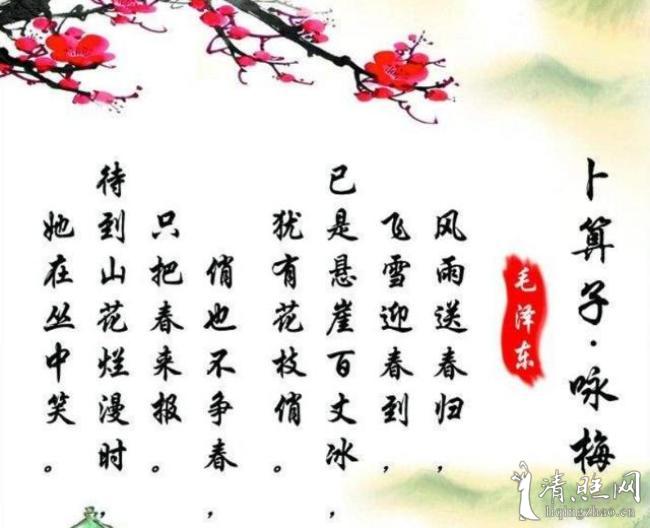 卜算子·咏梅
毛泽东
风雨送春归，
飞雪迎春到，
已是悬崖百丈冰，
犹有花枝俏。
俏也不争春，
只把春来报。
待到山花烂漫时，
她在丛中笑。
liqingzhao.cn